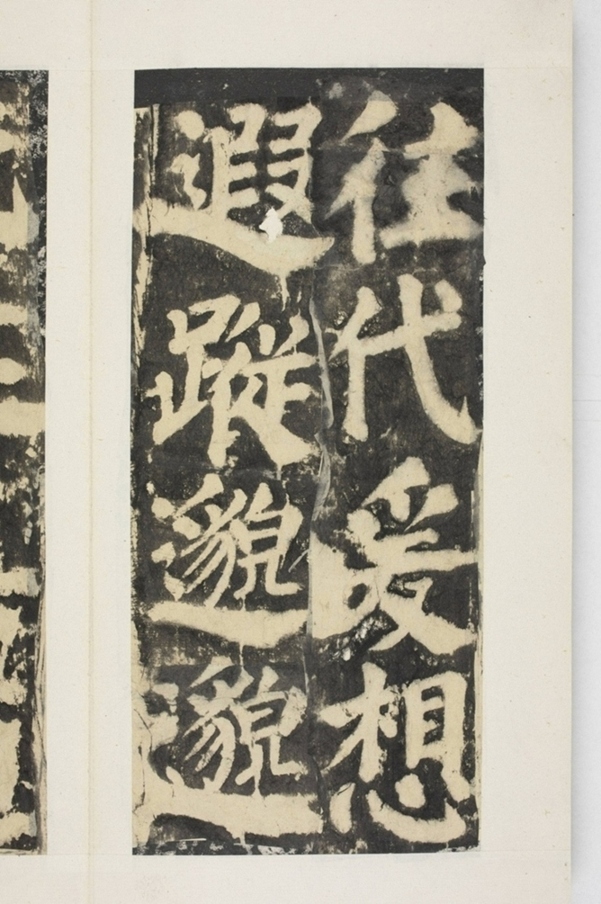 往代爰想
遐蹤邈邈